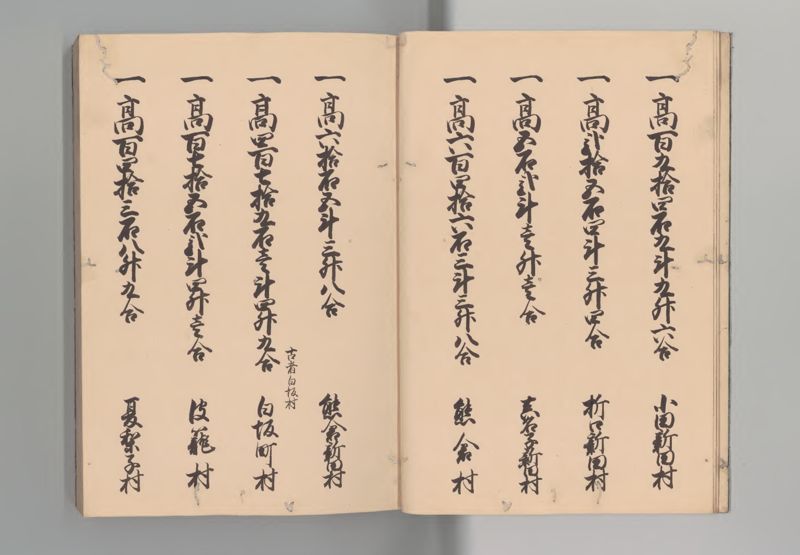 一高百九拾四石九斗九升六合 小田新田村
一高弐拾五石四斗三升四合 折口新田村
一高五石弐斗壱升壱合 新田村
一高六百四拾六石三斗三升八合 熊倉村
一高六拾石五斗三升八合 熊倉新田村
古者白坂村
一高四百七拾九石壱斗四升九合 白坂町村
一高百七拾五石弐斗四升壱合 皮籠村
一高百四拾三石八升九合 夏梨子村